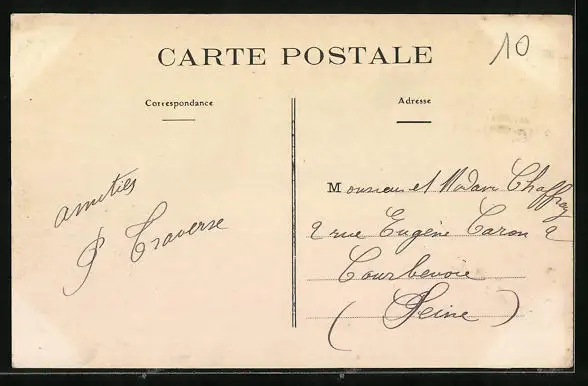 CARTE POSTALE
10
Correspondance
Adresse
amitiés
P Traverse
Monsieur et Madame Chaffray
2 rue Eugène Caron 2
Courbevoie
(Seine)